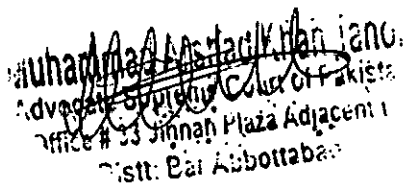 Muhammad Khan
Advocate Supreme Court of Pakista
Office # 33 Jinnah Plaza Adjacent
Distt: Bar Abbottaba